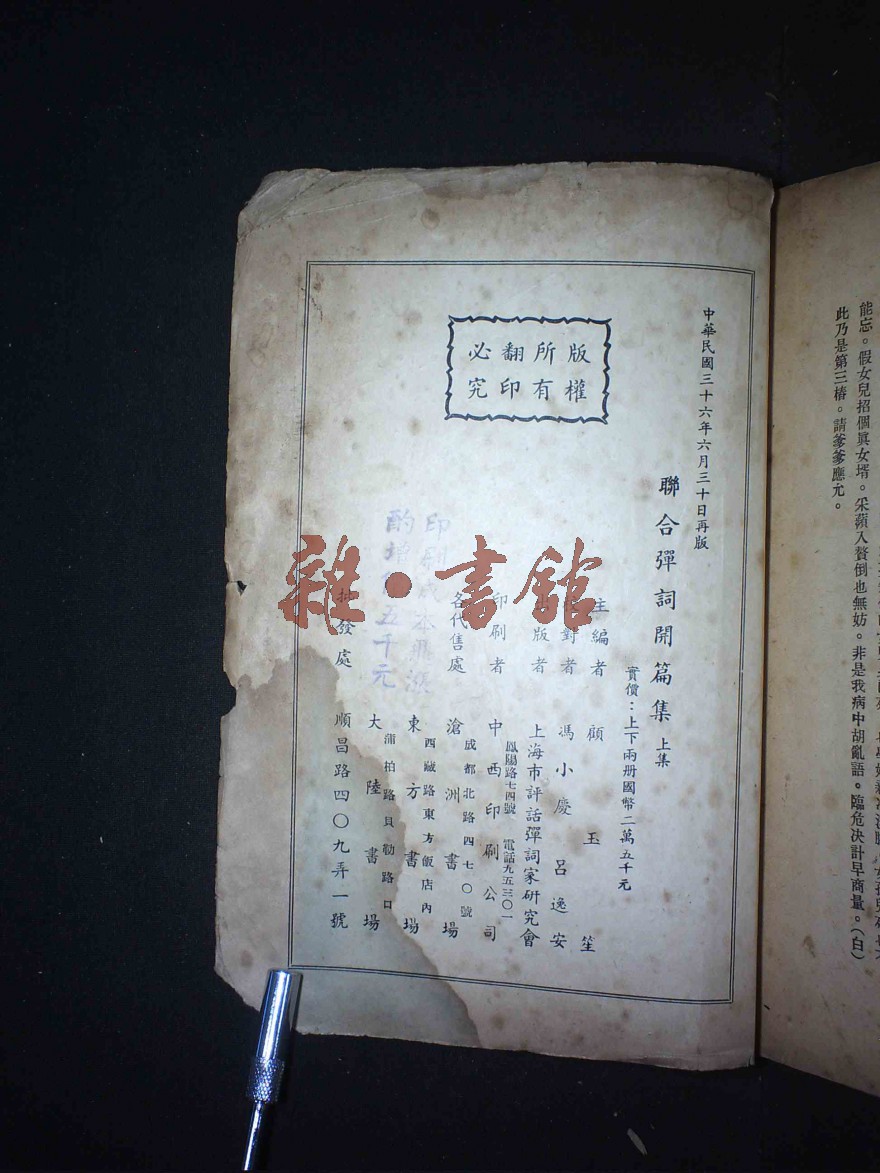 能忘。假女兒招個眞女壻。采蘋入贅倒也無妨。非是我病中胡亂語。臨危決計早商量。（白）
此乃是第三樁。請爹爹應允。
中華民國三十六年六月三十日再版
版權
所有
翻印
必究
聯合彈詞開篇集 上集
實價：上下兩册國幣二萬五千元
主編者 顧玉笙
對者 馮小慶 呂逸安
版者 上海市評話彈詞家研究會
鳳陽路七四號 電話九五三〇一
印刷者 中西印刷公司
各代售處 滄洲書場
成都北路四七〇號
東方書場
西藏路東方飯店內
大陸書場
蒲柏路貝勒路口
發處 順昌路四〇九弄一號
印刷成本飛漲
酌增 五千元
雜·書館